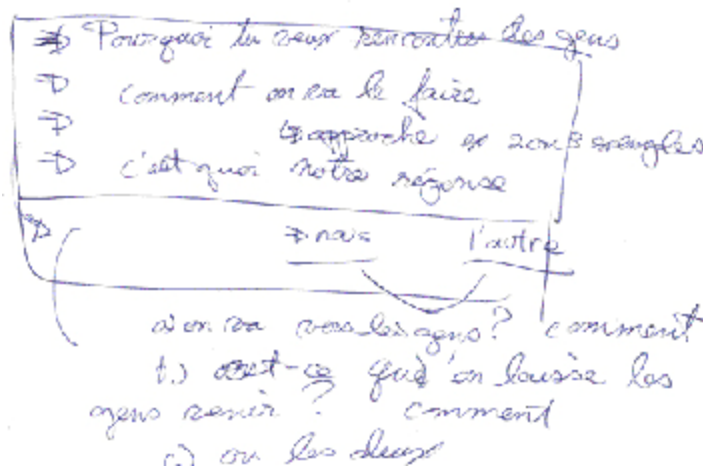 Pourquoi tu veux rencontrer des gens
comment on va le faire
approche ex 2 ou 3 exemples
c'est quoi notre réponse
nous l'autre
a) on va vers les gens? comment
b.) est-ce que l'on laisse les
gens venir? comment
c) ou les deux